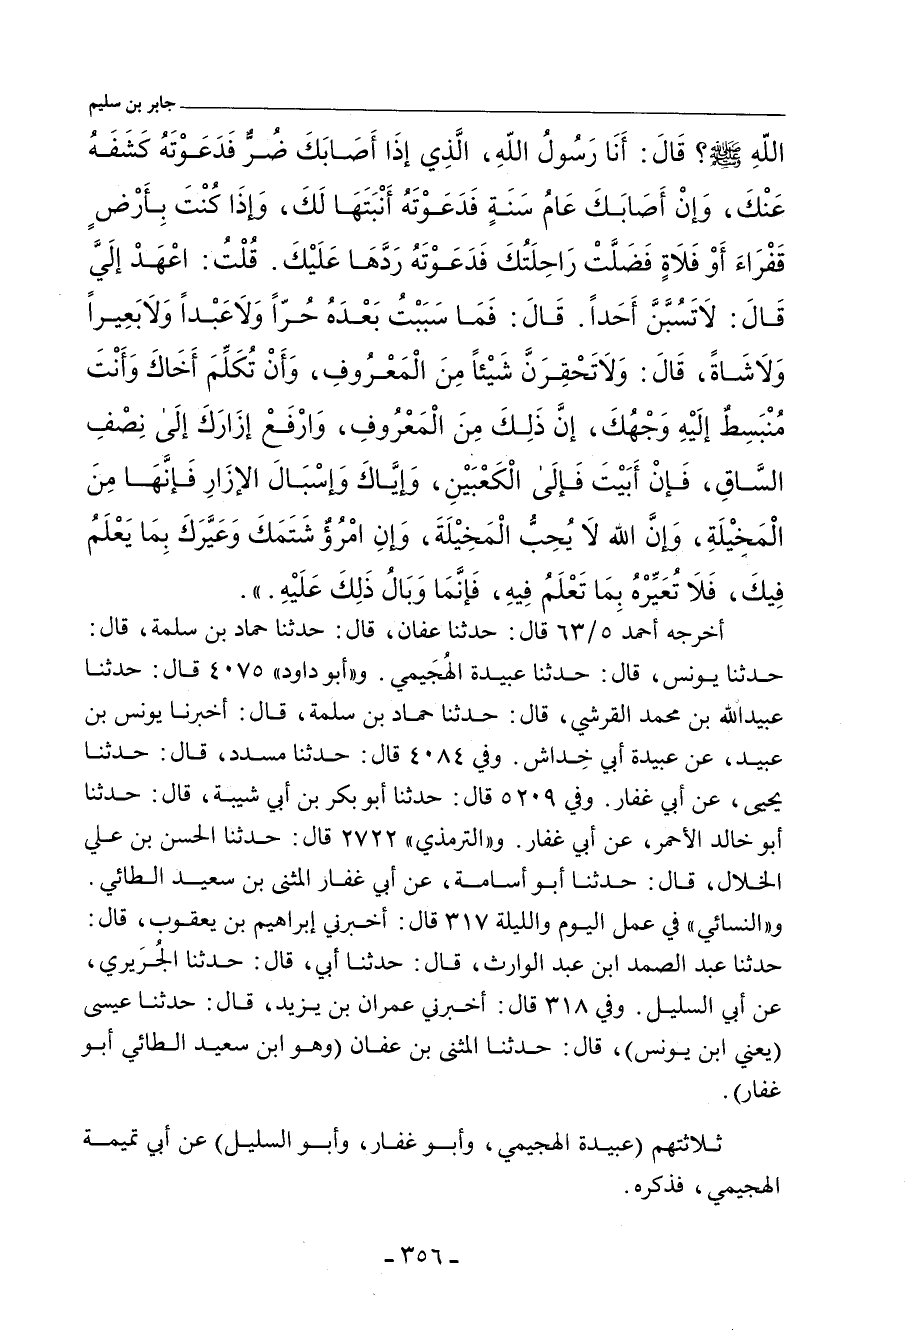 جابر بن سليم
اللَّهِ ﷺ؟ قَالَ: أَنَا رَسُولُ اللَّهِ، الَّذِي إِذَا أَصَابَكَ ضُرٌّ فَدَعَوْتَهُ كَشَفَهُ
عَنْكَ، وَإِنْ أَصَابَكَ عَامُ سَنَةٍ فَدَعَوْتَهُ أَنْبَتَهَا لَكَ، وَإِذَا كُنْتَ بِأَرْضٍ
قَفْرَاءَ أَوْ فَلَاةٍ فَضَلَّتْ رَاحِلَتُكَ فَدَعَوْتَهُ رَدَّهَا عَلَيْكَ. قُلْتُ: اعْهَدْ إِلَيَّ
قَالَ: لَاتَسُبَّنَّ أَحَداً. قَالَ: فَمَا سَبَبْتُ بَعْدَهُ حُرّاً وَلَاعَبْداً وَلَابَعِيراً
وَلَاشَاةً، قَالَ: وَلَاتَحْقِرَنَّ شَيْئاً مِنَ الْمَعْرُوفِ، وَأَنْ تُكَلِّمَ أَخَاكَ وَأَنْتَ
مُنْبَسِطٌ إِلَيْهِ وَجْهُكَ، إِنَّ ذَلِكَ مِنَ الْمَعْرُوفِ، وَارْفَعْ إِزَارَكَ إِلَىٰ نِصْفِ
السَّاقِ، فَإِنْ أَبَيْتَ فَإِلَىٰ الْكَعْبَيْنِ، وَإِيَّاكَ وَإِسْبَالَ الإِزَارِ فَإِنَّهَا مِنَ
الْمَخِيْلَةِ، وَإِنَّ اللَّه لَا يُحِبُّ الْمَخِيْلَةَ، وَإِنِ امْرُؤٌ شَتَمَكَ وَعَيَّرَكَ بِمَا يَعْلَمُ
فِيكَ، فَلَا تُعَيِّرْهُ بِمَا تَعْلَمُ فِيهِ، فَإِنَّمَا وَبَالُ ذَلِكَ عَلَيْهِ.».
أخرجه أحمد ٦٣/٥ قال: حدثنا عفان، قال: حدثنا حماد بن سلمة، قال:
حدثنا يونس، قال: حدثنا عبيدة الهُجَيمي. و«أبو داود» ٤٠٧٥ قال: حدثنا
عبيدالله بن محمد القرشي، قال: حدثنا حماد بن سلمة، قال: أخبرنا يونس بن
عبيد، عن عبيدة أبي خِداش. وفي ٤٠٨٤ قال: حدثنا مسدد، قال: حدثنا
يحيى، عن أبي غفار. وفي ٥٢٠٩ قال: حدثنا أبو بكر بن أبي شيبة، قال: حدثنا
أبو خالد الأحمر، عن أبي غفار. و«الترمذي» ٢٧٢٢ قال: حدثنا الحسن بن علي
الخلال، قال: حدثنا أبو أسامة، عن أبي غفار المثنى بن سعيد الطائي.
و«النسائي» في عمل اليوم والليلة ٣١٧ قال: أخبرني إبراهيم بن يعقوب، قال:
حدثنا عبد الصمد ابن عبد الوارث، قال: حدثنا أبي، قال: حدثنا الجُرَيري،
عن أبي السليل. وفي ٣١٨ قال: أخبرني عمران بن يزيد، قال: حدثنا عيسى
(يعني ابن يونس)، قال: حدثنا المثنى بن عفان (وهو ابن سعيد الطائي أبو
غفار).
ثلاثتهم (عبيدة الهجيمي، وأبو غفار، وأبو السليل) عن أبي تميمة
الهجيمي، فذكره.
- ٣٥٦ -